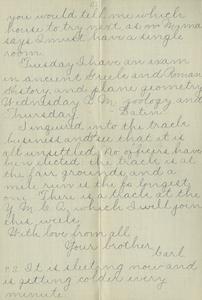 you would tell me which
house to try next as mr Wyman
says I must have a single
room.
Tuesday I have an exam
in ancient Greek and Roman
History, and plane geometry
Wednesday A.M. zoology and
Thursday Latin
I inquired into the track
business and see that it is
all unsettled. No officers have
been elected. The track is at
the fair grounds and a
mile run is the longest
one. There is a track at the
Y.M.C.A. which I will join
this week.
With love from all,
Your brother
Carl
P.S. It is sleeting now and
is getting colder every
minute.